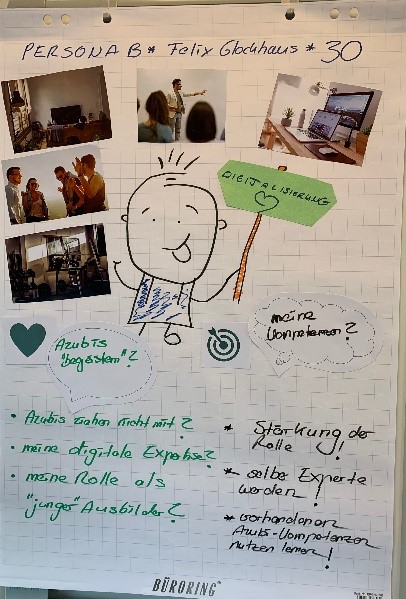 PERSONA B * Felix Glockhaus * 30
DIGITALISIERUNG
Azubis
"begeistern"?
meine
Kompetenzen?
• Azubis ziehen nicht mit?
• meine digitale Expertise?
• meine Rolle als
"junger" Ausbilder?
* Stärkung der
Rolle!
* selbst Experte
werden!
* vorhandenen
Azubi-Kompetenzen
nutzen lernen!
BÜRORING